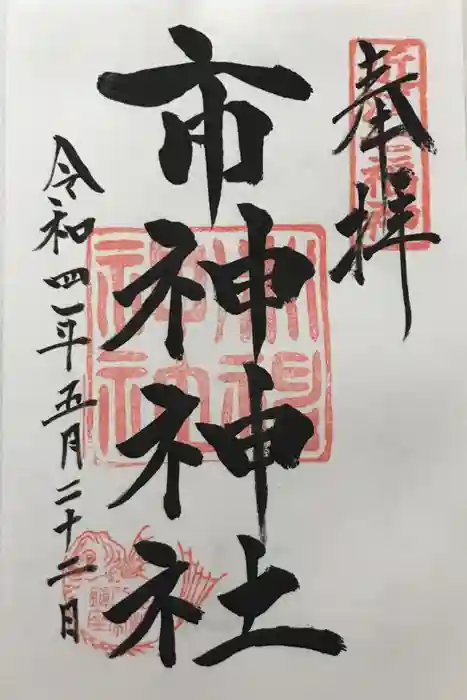 奉拝
市神神社
令和四年五月二十二日